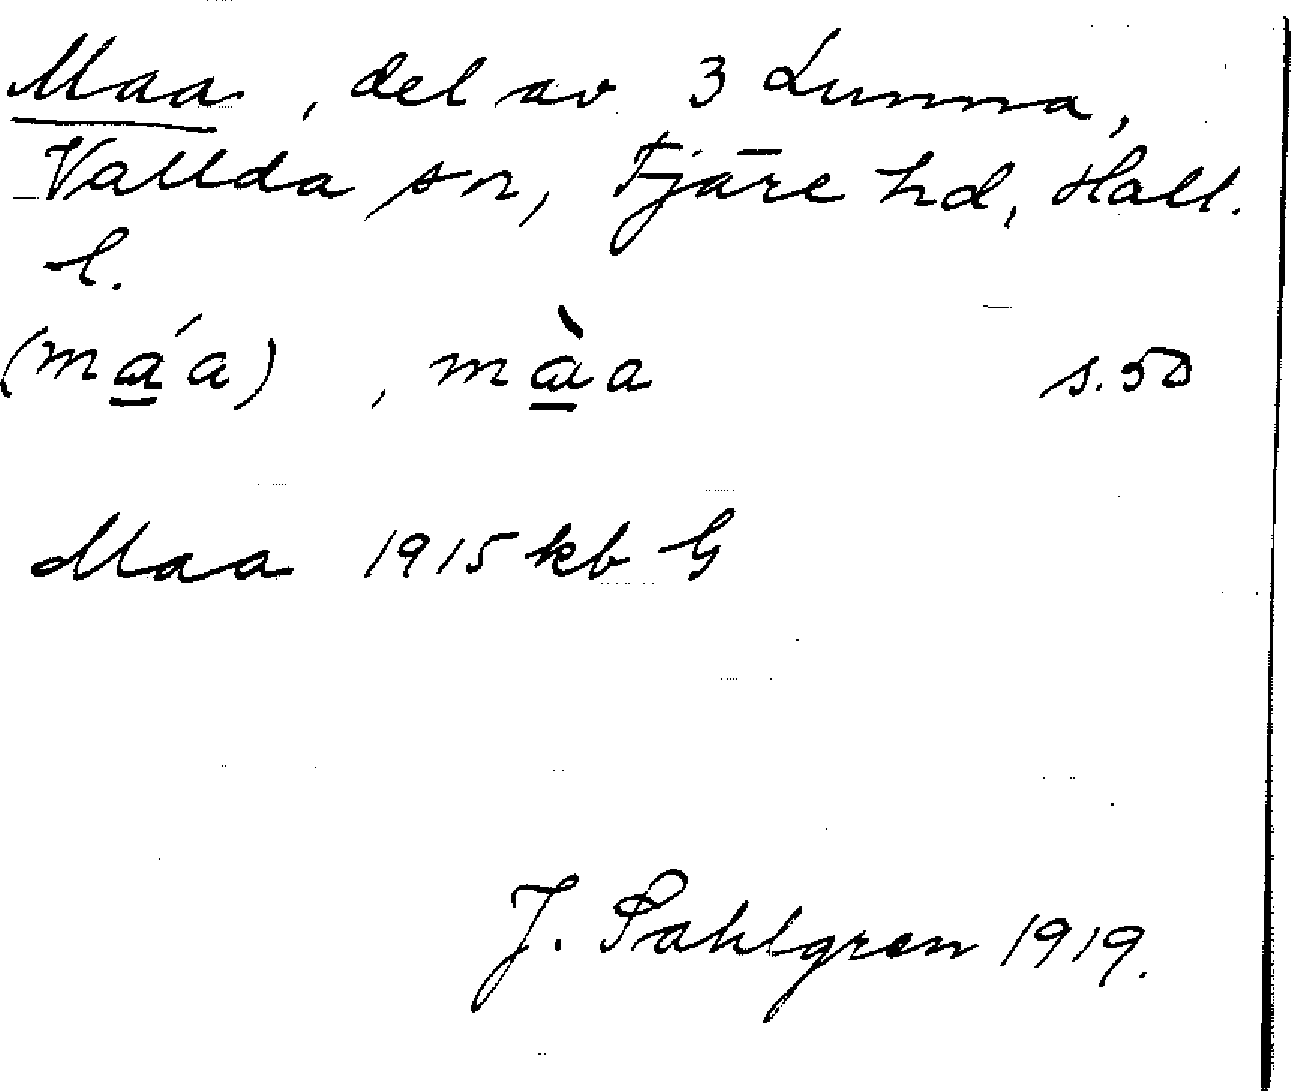 Maa, del av 3 Lunna,
Vallda sn, Fjäre hd, Hall.
l.
(ma̲´a), mà̲a s.50
Maa 1915 kb G
J. Sahlgren 1919.